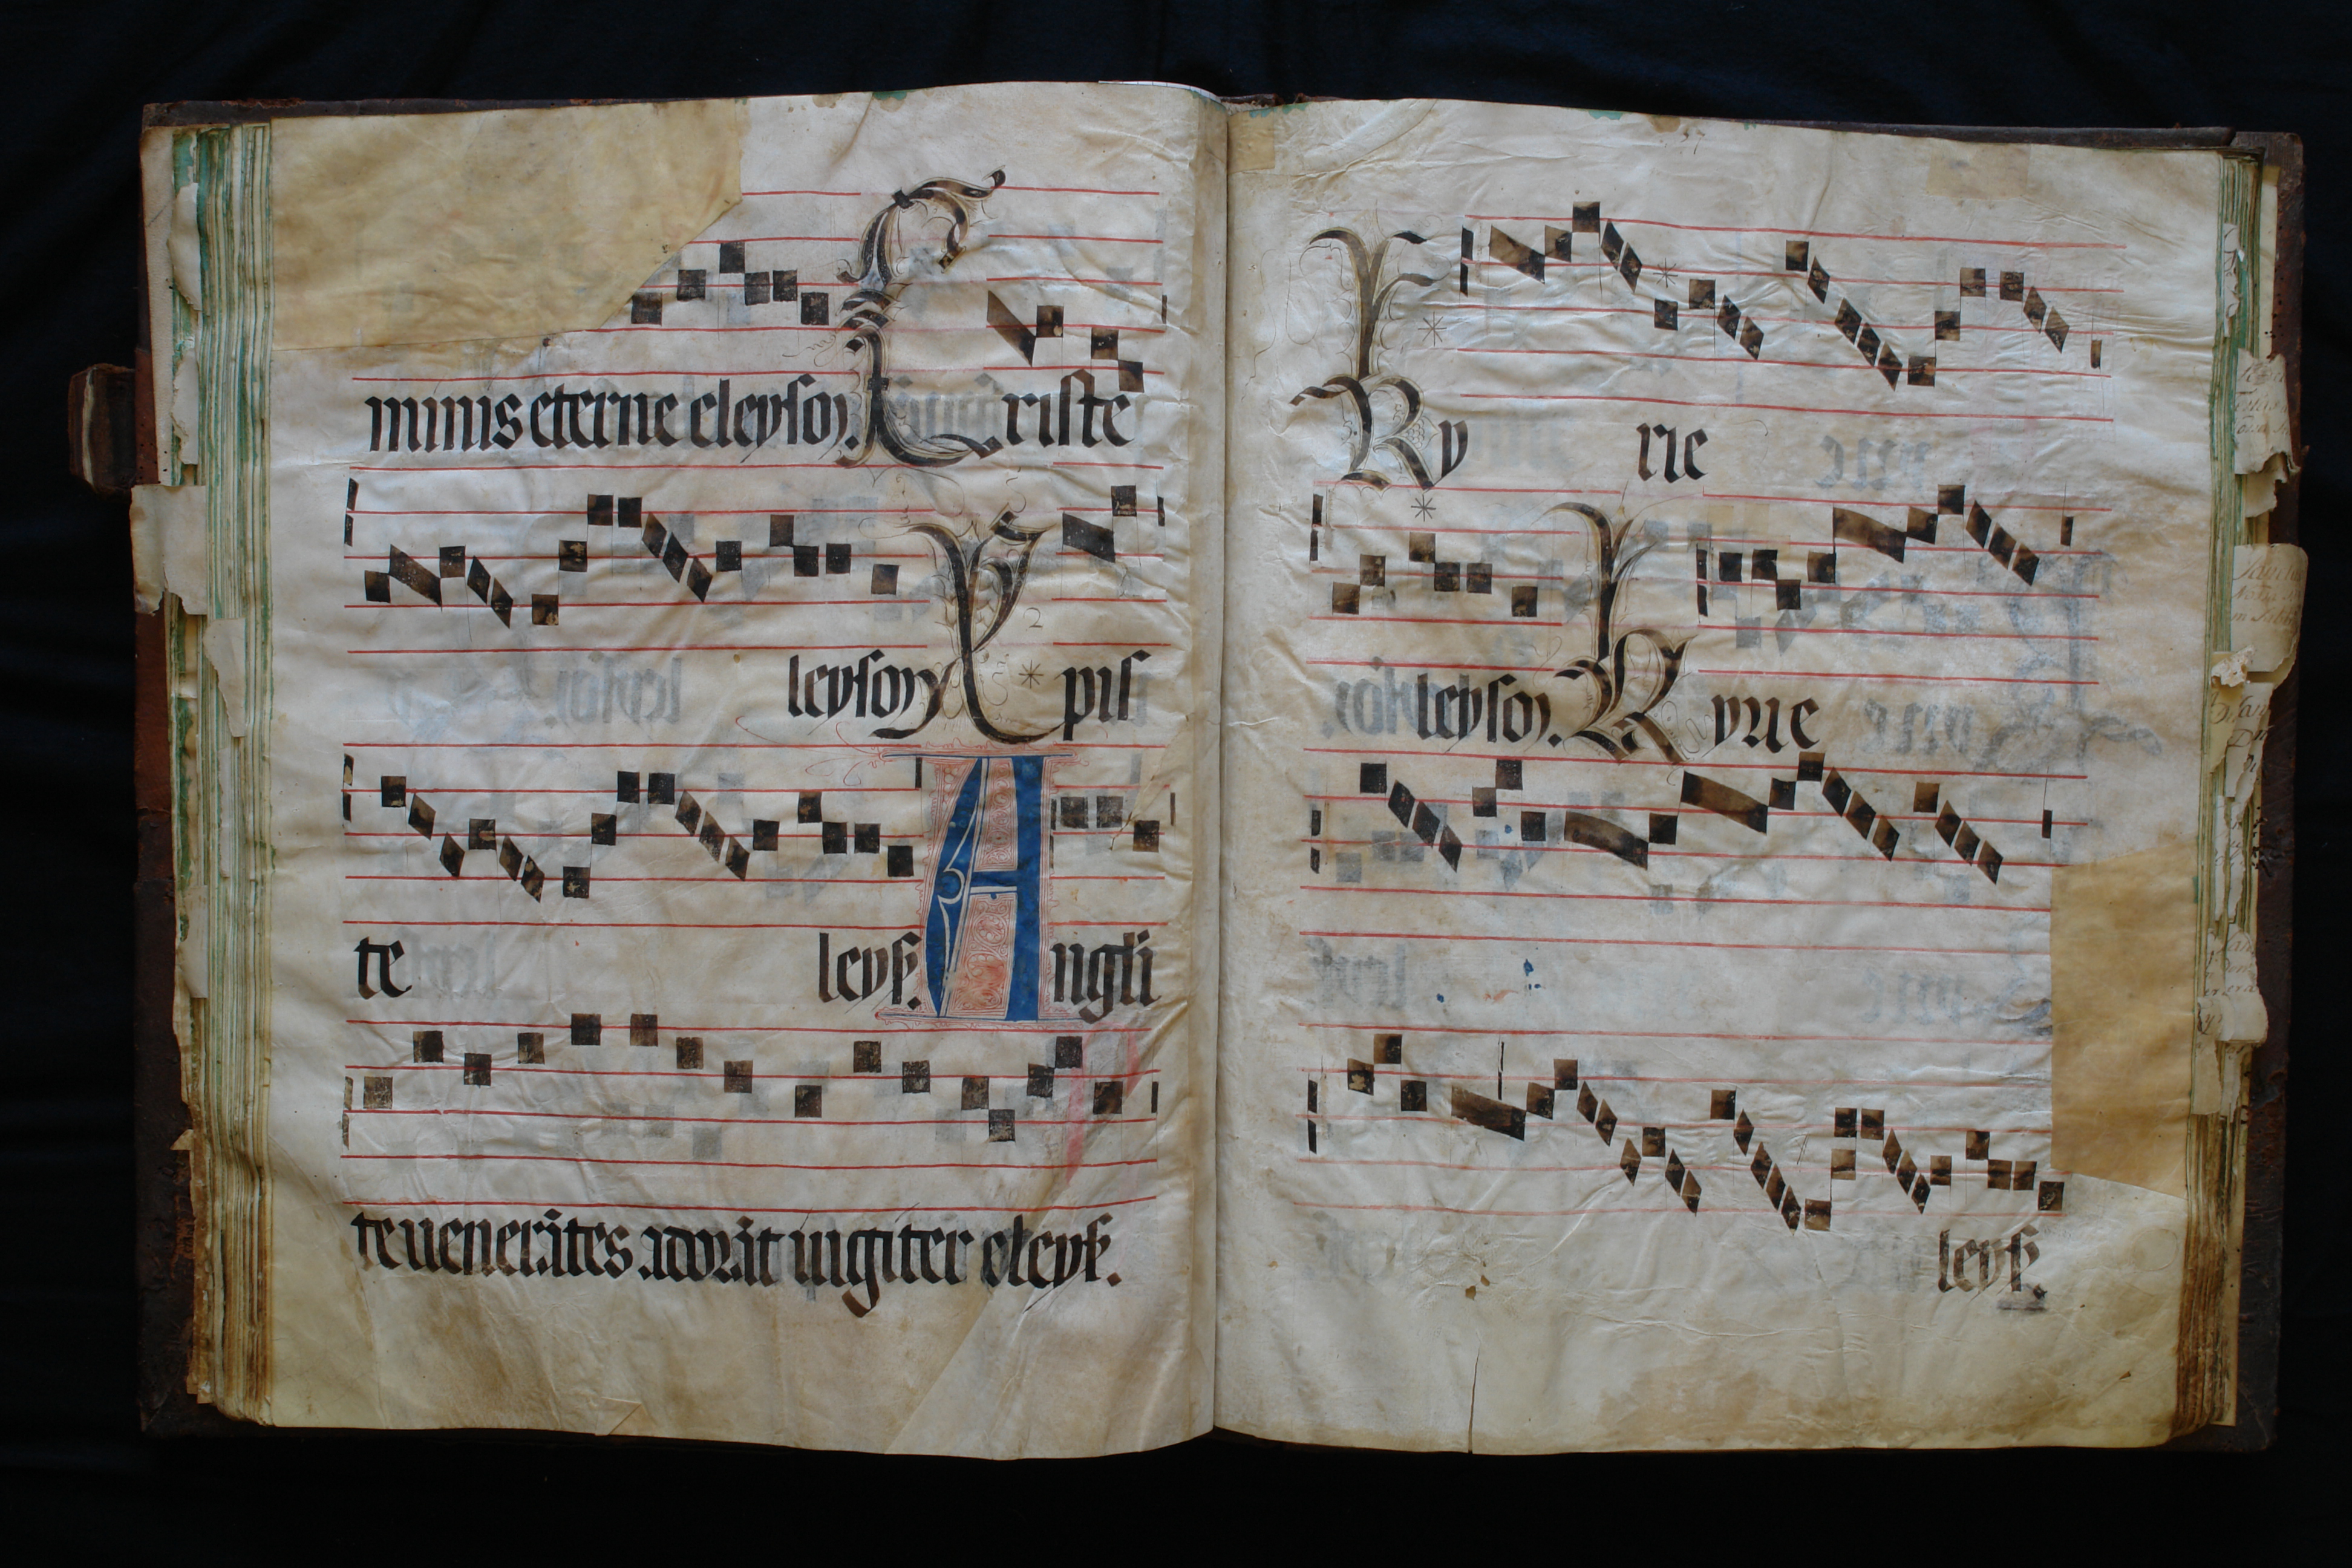 minis eterne eleyson. Criste
leyson Xpis
te leys. Angli
te uenerātes adorāt iugiter eleys.
Ky rie
leyson. Kyrie
leys.